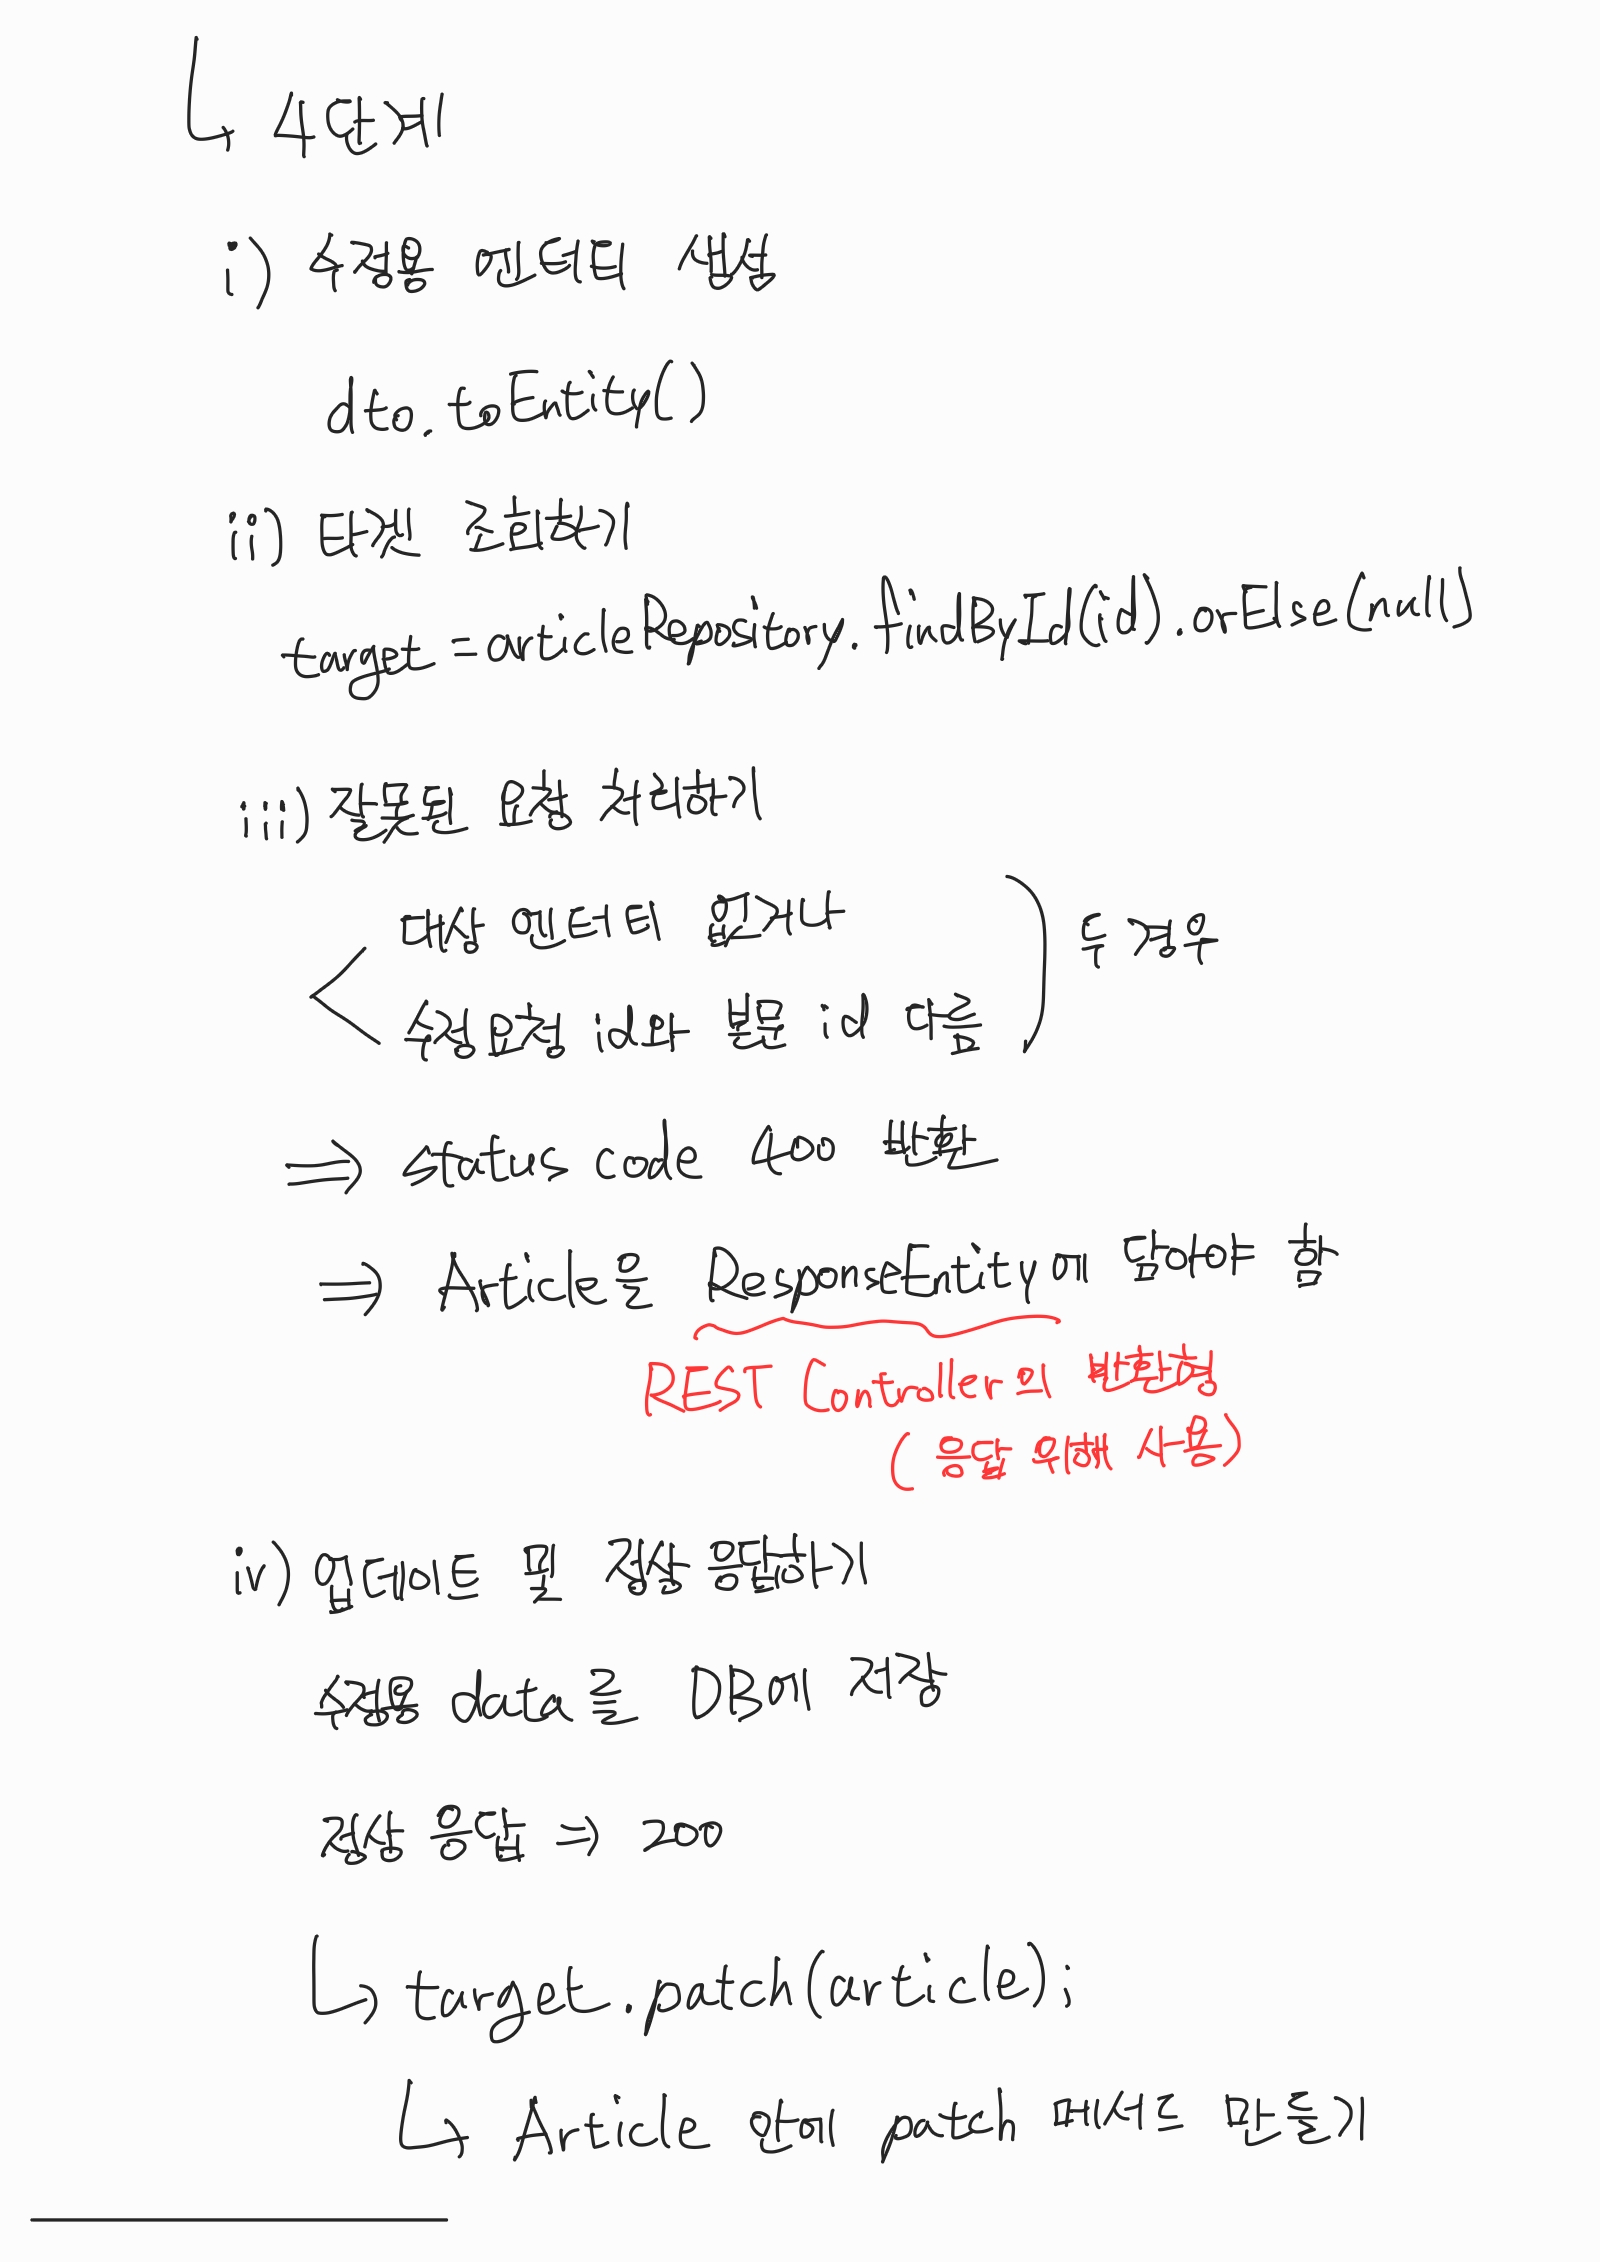 ↳ 4단계
i) 수정용 엔터티 생성
dto.toEntity()
ii) 타겟 조회하기
target = articleRepository.findById(id).orElse(null)
iii) 잘못된 요청 처리하기
대상 엔터티 없거나
두 경우
수정 요청 id와 본문 id 다름
⇒ status code 400 반환
⇒ Article을 ResponseEntity에 담아야 함
REST Controller의 반환형
(응답 위해 사용)
iv) 업데이트 및 정상 응답하기
수정용 data를 DB에 저장
정상 응답 ⇒ 200
↳ target.patch(article);
↳ Article 안에 patch 메서드 만들기